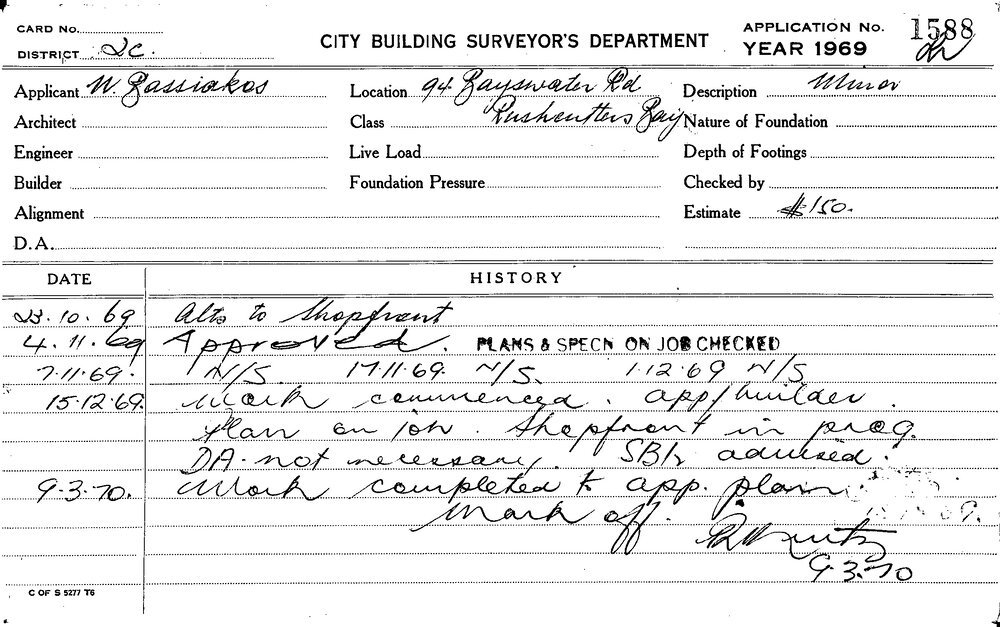 CARD No.
DISTRICT 2c.
CITY BUILDING SURVEYOR'S DEPARTMENT
APPLICATION No. 1588
YEAR 1969
Applicant W. Bassiakos Location 94 Bayswater Rd Description Minor
Architect Class Rushcutters Bay Nature of Foundation
Engineer Live Load Depth of Footings
Builder Foundation Pressure Checked by
Alignment Estimate $150.
D.A.
DATE HISTORY
23.10.69 Alts to Shopfront
4.11.69 Approved. PLANS & SPECN ON JOB CHECKED
7.11.69. N/S. 17.11.69. N/S. 1.12.69 N/S
15.12.69. Work commenced. app/builder.
Plan on job. Shopfront in prog.
DA. not necessary. advised.
9.3.70. Work completed to app. plan
Mark off.
9.3.70
C OF S 5277 T6